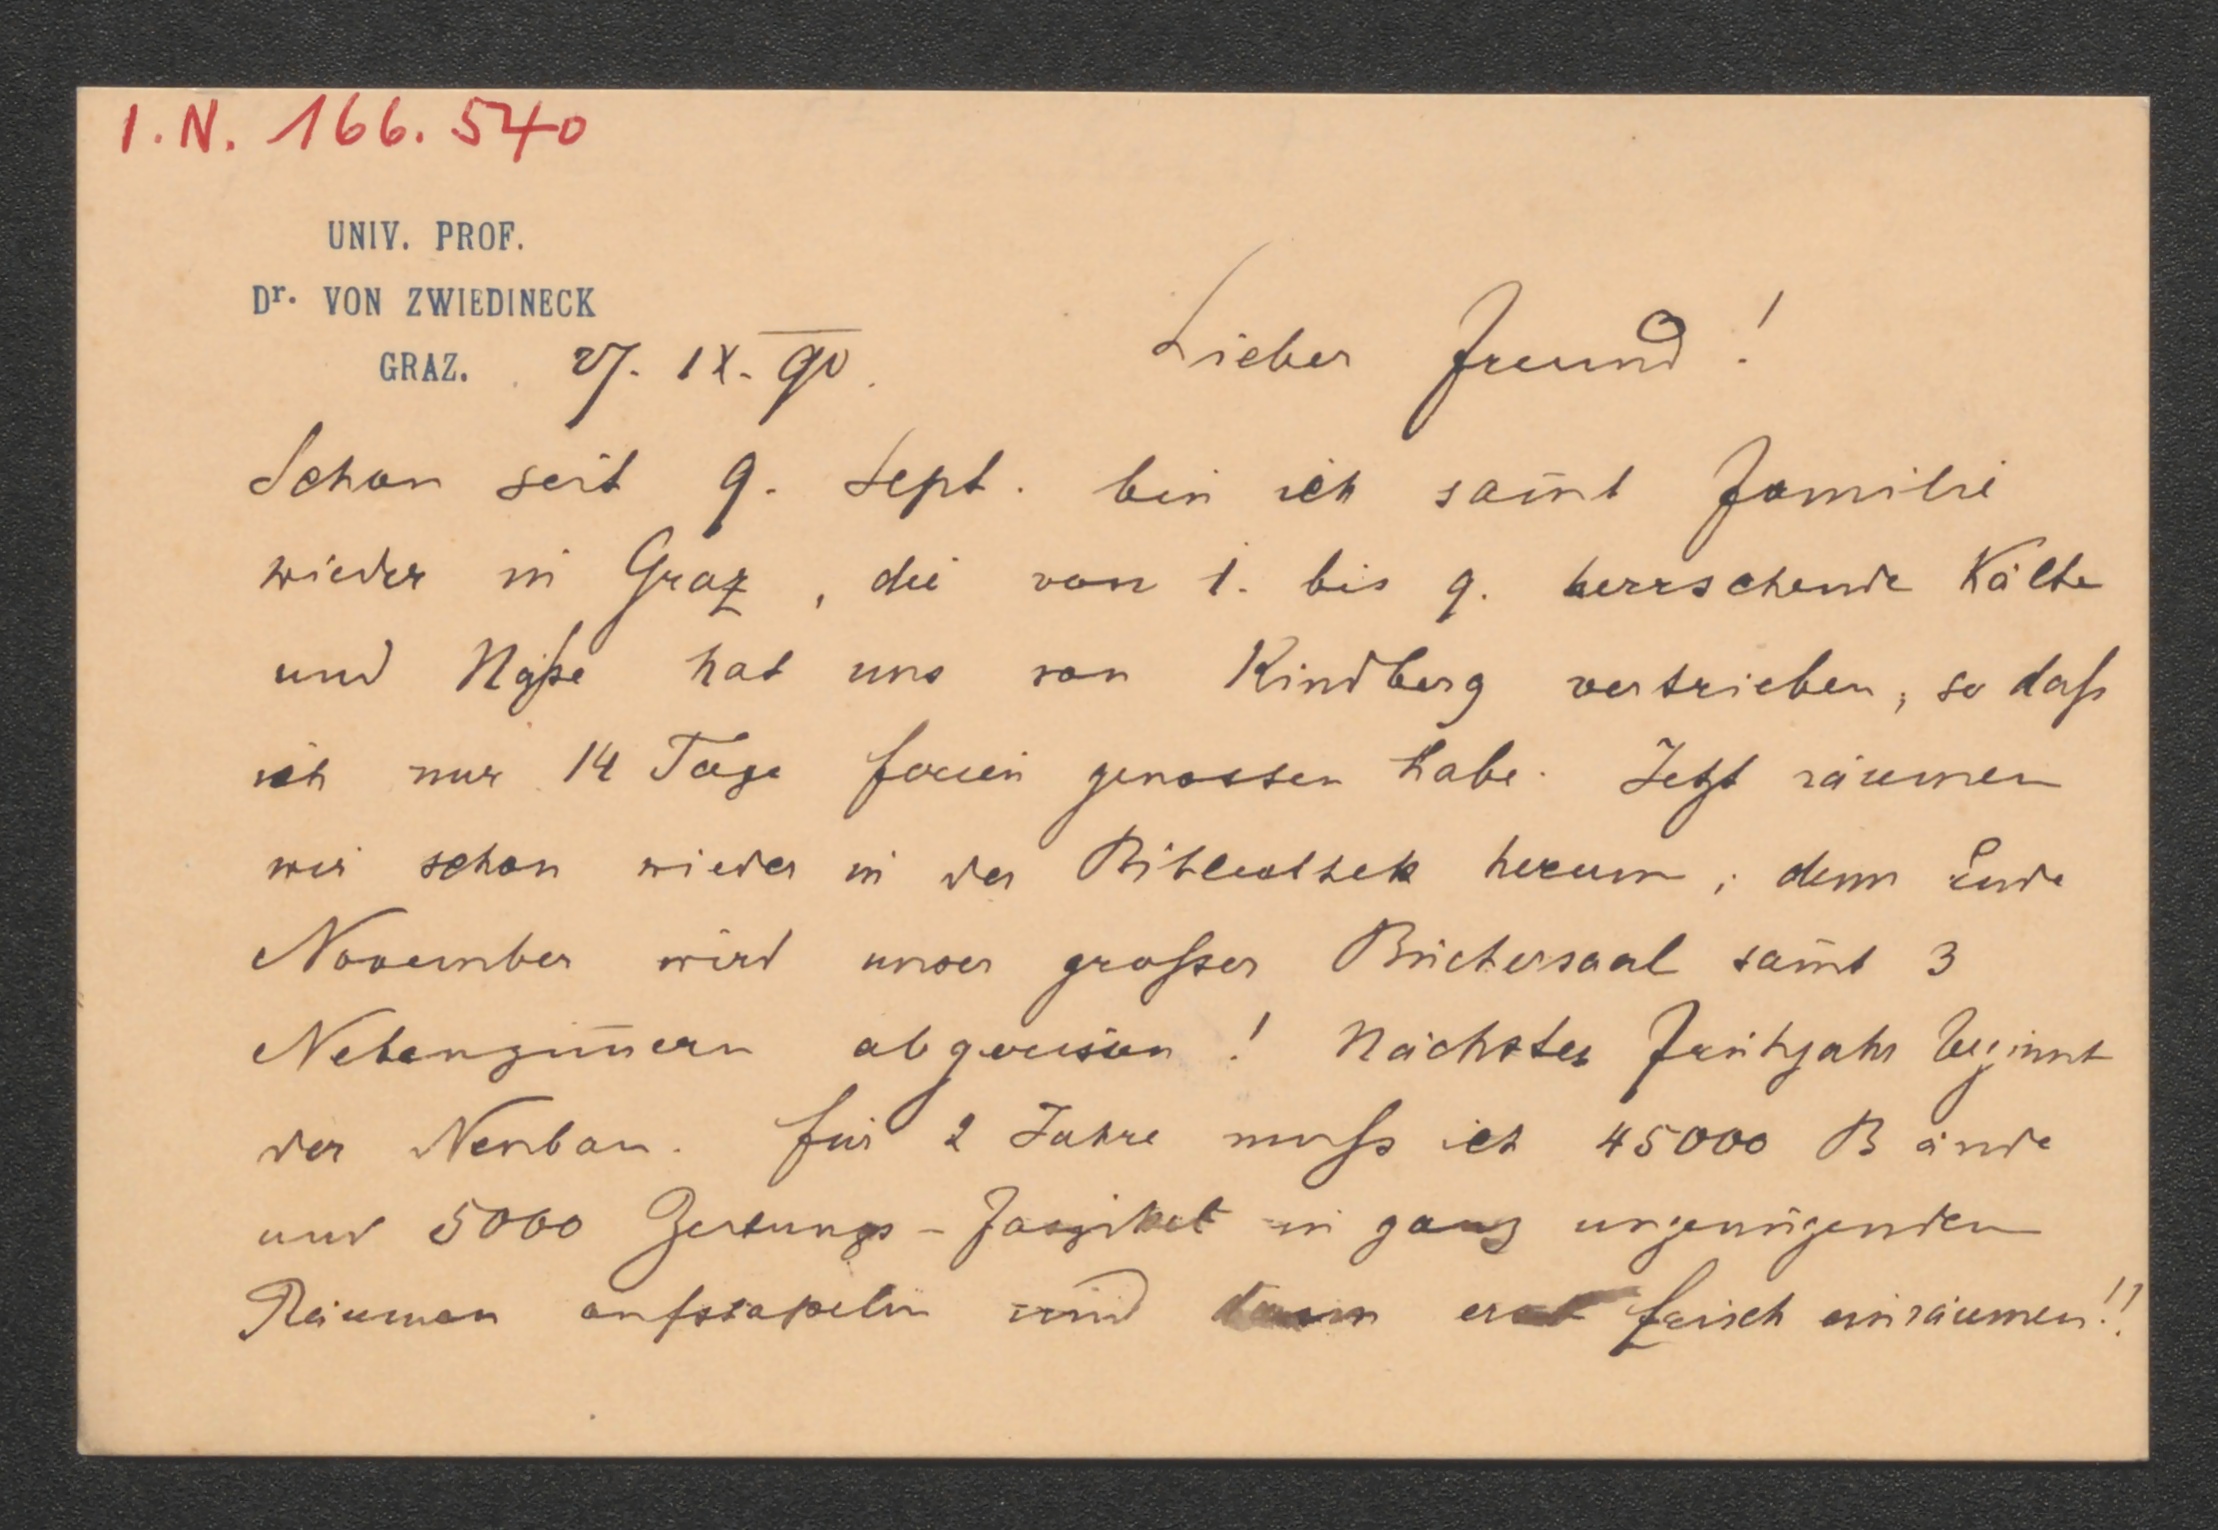 I.N. 166.540
UNIV. PROF.
Dr. VON ZWIEDINECK
GRAZ. 27. IX. 90.
Lieber Freund!
Schon seit 9. Sept. bin ich sam̄t Familie
wieder in Graz, die von 1. bis 9. herrschende Kälte
und Näße hat uns von Kindberg vertrieben, so daß
ich nur 14 Tage Ferien genossen habe. Jetzt räumen
wir schon wieder in der Bibliothek herum; denn Ende
November wird unser großer Büchersaal sam̄t 3
Nebenzim̄ern abgerissen! Nächstes Frühjahr beginnt
der Neubau. Für 2 Jahre muß ich 45000 Bände
und 5000 Zeitungs-Faszikel in ganz ungenügenden
Räumen aufstapeln und dann erst frisch einräumen!!